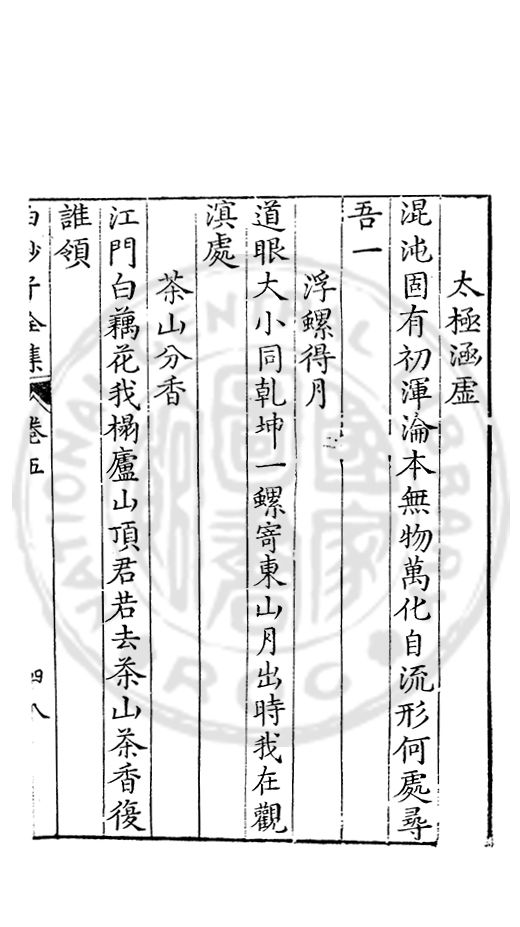 太極涵虛
混沌固有初渾淪本無物萬化自流形何處尋
吾一
浮螺得月
道眼大小同乾坤一螺寄東山月出時我在觀
溟處
茶山分香
江門白藕花我榻廬山頂君若去茶山茶香復
誰領
白沙子全集 卷五 四八